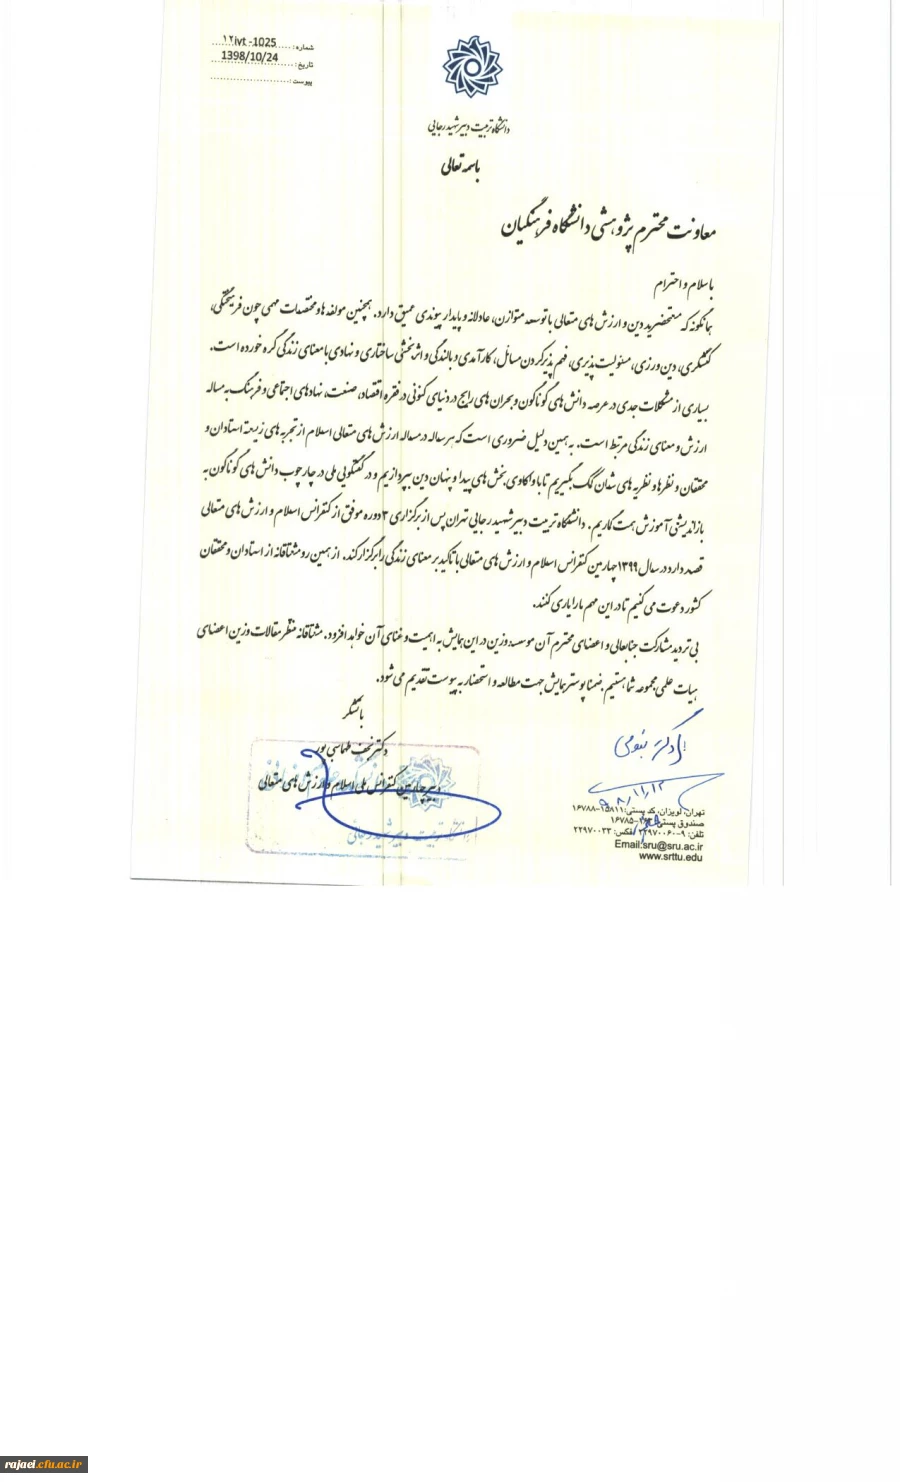 شماره: ۱۲ivt -1025
تاریخ: 1398/10/24
پیوست:
دانشگاه تربیت دبیر شهید رجایی
باسمه تعالی
معاونت محترم پژوهشی دانشگاه فرهنگیان
با سلام و احترام
همانگونه که مستحضرید دین و ارزش های متعالی با توسعه متوازن، عادلانه و پایدار پیوندی عمیق دارد. همچنین مولفه ها و مختصات مهمی چون فرهیختگی،
کنشگری، دین ورزی، مسئولیت پذیری، فهم پذیر کردن مسائل، کارآمدی و بالندگی و اثربخشی ساختاری و نهادی با معنای زندگی گره خورده است.
بسیاری از مشکلات جدی در عرصه دانش های گوناگون و بحران های رایج در دنیای کنونی در فقره اقتصاد، صنعت، نهادهای اجتماعی و فرهنگ به مساله
ارزش و معنای زندگی مرتبط است. به همین دلیل ضروری است که هر ساله در مساله ارزش های متعالی اسلام از تجربه های زیسته استادان و
محققان و نظرها و نظریه های شان کمک بگیریم تا با واکاوی بخش های پیدا و پنهان دین بپردازیم و در گفتگویی ملی در چارچوب دانش های گوناگون به
بازاندیشی آموزش همت گماریم. دانشگاه تربیت دبیر شهید رجایی تهران پس از برگزاری ۳ دوره موفق از کنفرانس اسلام و ارزش های متعالی
قصد دارد در سال ۱۳۹۹ چهارمین کنفرانس اسلام و ارزش های متعالی با تاکید بر معنای زندگی را برگزار کند. از همین رو مشتاقانه از استادان و محققان
کشور دعوت می کنیم تا در این مهم ما را یاری کنند.
بی تردید مشارکت جنابعالی و اعضای محترم آن موسسه وزین در این همایش به اهمیت و غنای آن خواهد افزود. مشتاقانه منتظر مقالات وزین اعضای
هیات علمی مجموعه شما هستیم. ضمنا پوستر همایش جهت مطالعه و استحضار به پیوست تقدیم می شود.
با تشکر
دکتر نجف طهماسبی پور
دبیر چهارمین کنفرانس ملی اسلام و ارزش های متعالی
۹۸/۱۱/۱۲
تهران، لویزان، کد پستی: ۱۵۸۱۱-۱۶۷۸۸
صندوق پستی: ۱۶۷۸۵-
تلفن: ۹-۲۲۹۷۰۰۶۰ فکس: ۲۲۹۷۰۰۳۳
Email:sru@sru.ac.ir
www.srttu.edu
rajaei.cfu.ac.ir